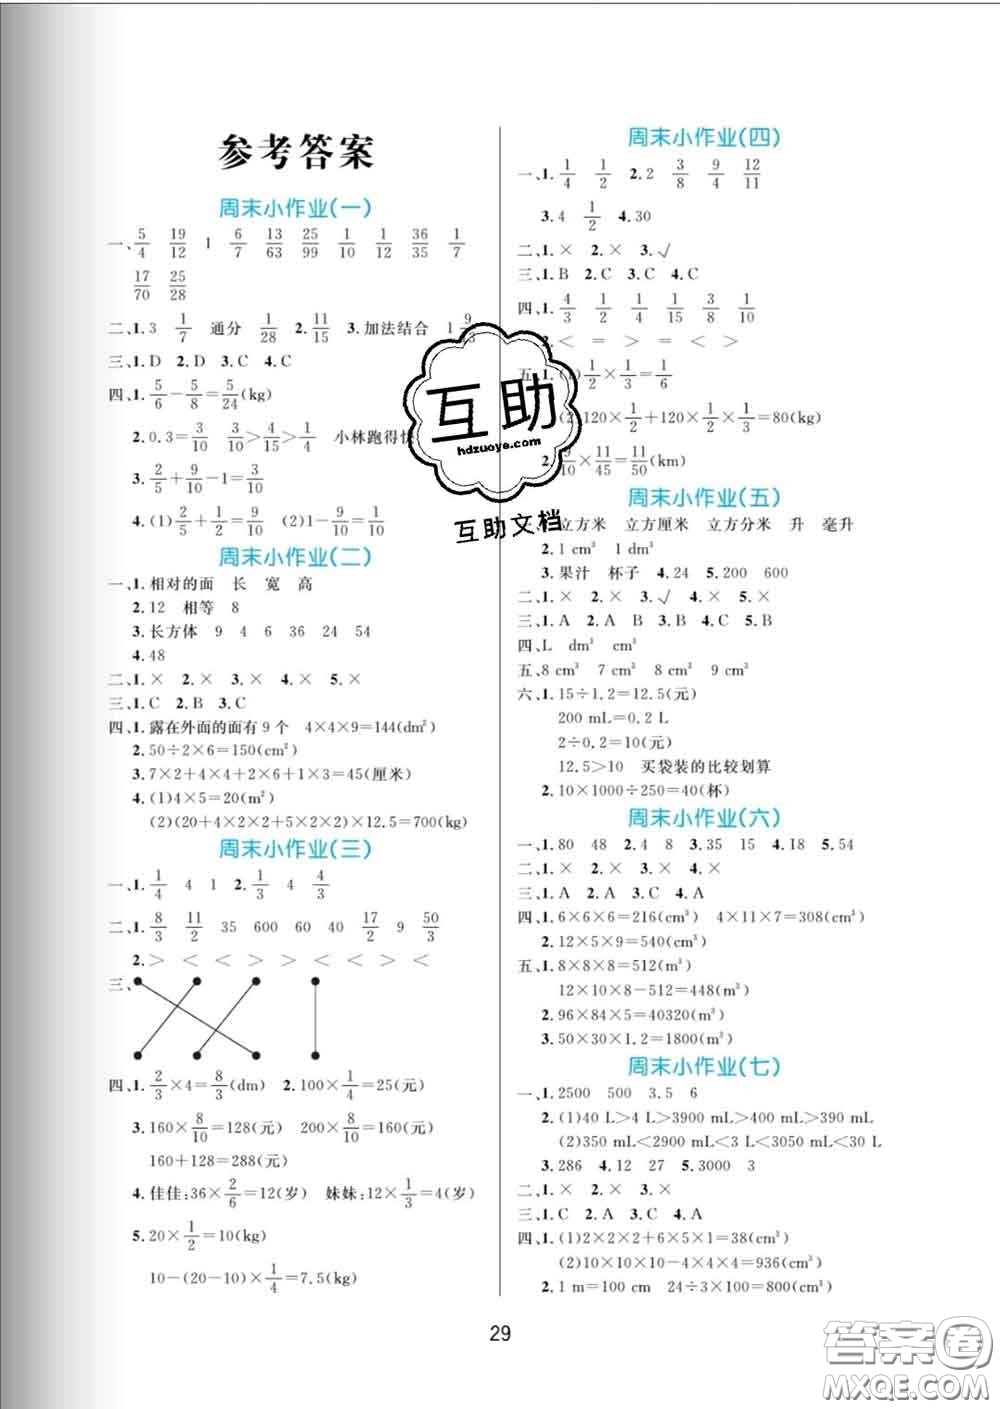 参考答案
周末小作业(一)
一、5/4 19/12 1 6/7 13/63 25/99 1/10 1/12 36/35 1/7
17/70 25/28
二、1.3 1/7 通分 1/28 2.11/15 3.加法结合 1
三、1.D 2.D 3.C 4.C
四、1.5/6－5/8＝5/24(kg)
2.0.3＝3/10 3/10＞4/15＞1/4 小林跑得快
3.2/5＋9/10－1＝3/10
4.(1)2/5＋1/10＝1/2 (2)1－9/10＝1/10
周末小作业(二)
一、1.相对的面 长 宽 高
2.12 相等 8
3.长方体 9 4 6 36 24 54
4.48
二、1.× 2.× 3.× 4.× 5.×
三、1.C 2.B 3.C
四、1.露在外面的面有9个 4×4×9＝144(dm²)
2.50÷2×6＝150(cm²)
3.7×2＋4×4＋2×6＋1×3＝45(厘米)
4.(1)4×5＝20(m²)
(2)(20＋4×2×2＋5×2×2)×12.5＝700(kg)
周末小作业(三)
一、1.1/4 4 1 2.1/3 4 4/3
二、1.8/3 11/2 35 600 60 40 17/2 9 50/3
2.＞ ＜ ＜ ＜ ＞ ＜ ＞ ＜ ＜
三、
四、1.2/3×4＝8/3(dm) 2.100×1/4＝25(元)
3.160×8/10＝128(元) 200×8/10＝160(元)
160＋128＝288(元)
4.佳佳:36×2/6＝12(岁) 妹妹:12×1/3＝4(岁)
5.20×1/2＝10(kg)
10－(20－10)×1/4＝7.5(kg)
周末小作业(四)
一、1.1/4 1/2 2.2 3/8 9/4 12/11
3.4 1/2 4.30
二、1.× 2.× 3.√
三、1.B 2.C 3.C 4.C
四、1.4/3 1/2 1/4 1/15 3/8 1/10
2.＜ ＝ ＞ ＝ ＜ ＞
五、1.(1)1/2×1/3＝1/6
(2)120×1/2＋120×1/2×1/3＝80(kg)
2.9/10×11/45＝11/50(km)
周末小作业(五)
立方米 立方厘米 立方分米 升 毫升
2.1 cm³ 1 dm³
3.果汁 杯子 4.24 5.200 600
二、1.× 2.× 3.√ 4.× 5.×
三、1.A 2.A B 3.B 4.C 5.B
四、L dm³ cm³
五、8 cm³ 7 cm³ 8 cm³ 9 cm³
六、1.15÷1.2＝12.5(元)
200 mL＝0.2 L
2÷0.2＝10(元)
12.5＞10 买袋装的比较划算
2.10×1000÷250＝40(杯)
周末小作业(六)
一、1.80 48 2.4 8 3.35 15 4.18 5.54
二、1.× 2.× 3.× 4.×
三、1.A 2.A 3.C 4.A
四、1.6×6×6＝216(cm³) 4×11×7＝308(cm³)
2.12×5×9＝540(cm³)
五、1.8×8×8＝512(m³)
12×10×8－512＝448(m³)
2.96×84×5＝40320(m³)
3.50×30×1.2＝1800(m³)
周末小作业(七)
一、1.2500 500 3.5 6
2.(1)40 L＞4 L＞3900 mL＞400 mL＞390 mL
(2)350 mL＜2900 mL＜3 L＜3050 mL＜30 L
3.286 4.12 27 5.3000 3
二、1.× 2.× 3.×
三、1.C 2.A 3.C 4.A
四、1.(1)2×2×2＋6×5×1＝38(cm³)
(2)10×10×10－4×4×4＝936(cm³)
2.1 m＝100 cm 24÷3×100＝800(cm³)
29
互助
hdzuoye.com
互助文档
答案圈
MXQE.COM